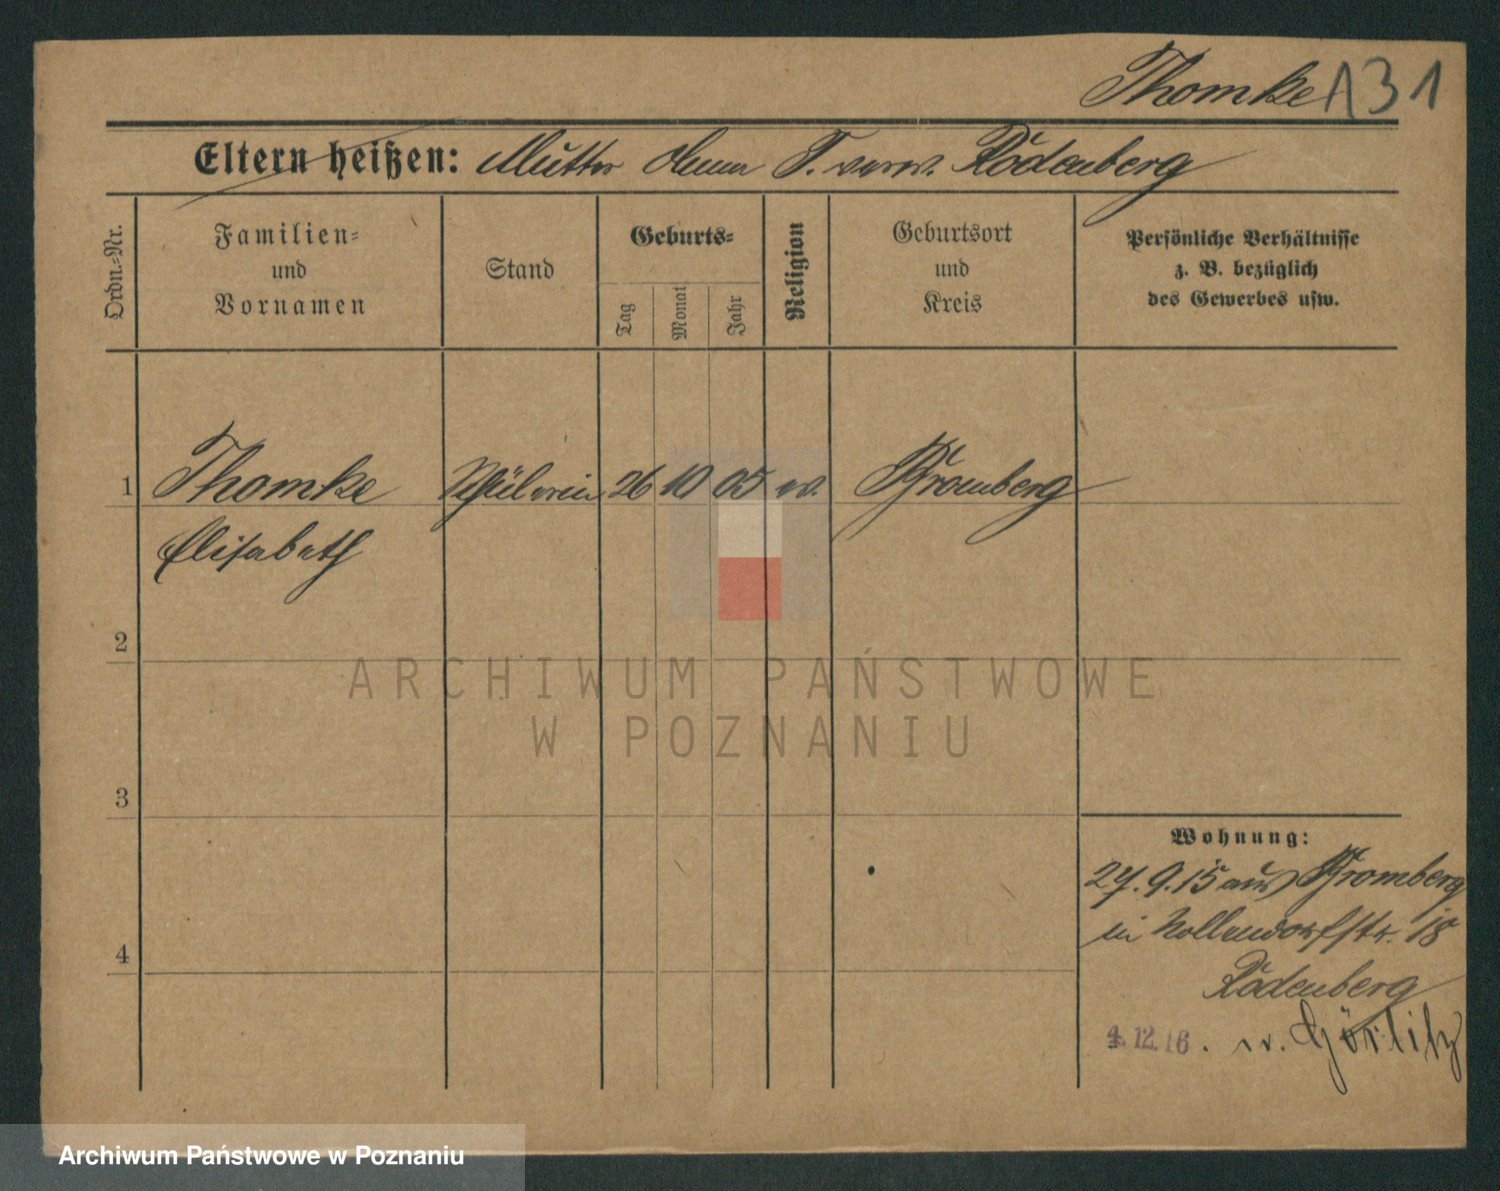 Thomke 131
Eltern heißen: Mutter Anna T. verw. Rödenberg
Ordn.-Nr.
Familien-
und
Vornamen
Stand
Geburts-
Tag
Monat
Jahr
Religion
Geburtsort
und
Kreis
Persönliche Verhältnisse
z. B. bezüglich
des Gewerbes usw.
1 Thomke Schülerin 26 10 05 ev. Bromberg
Elisabeth
2
3
4
Wohnung:
27.9.15 aus Bromberg
in Nollendorfstr. 18
Rödenberg
4.12.16. n. Görlitz
ARCHIWUM PAŃSTWOWE
W POZNANIU
Archiwum Państwowe w Poznaniu